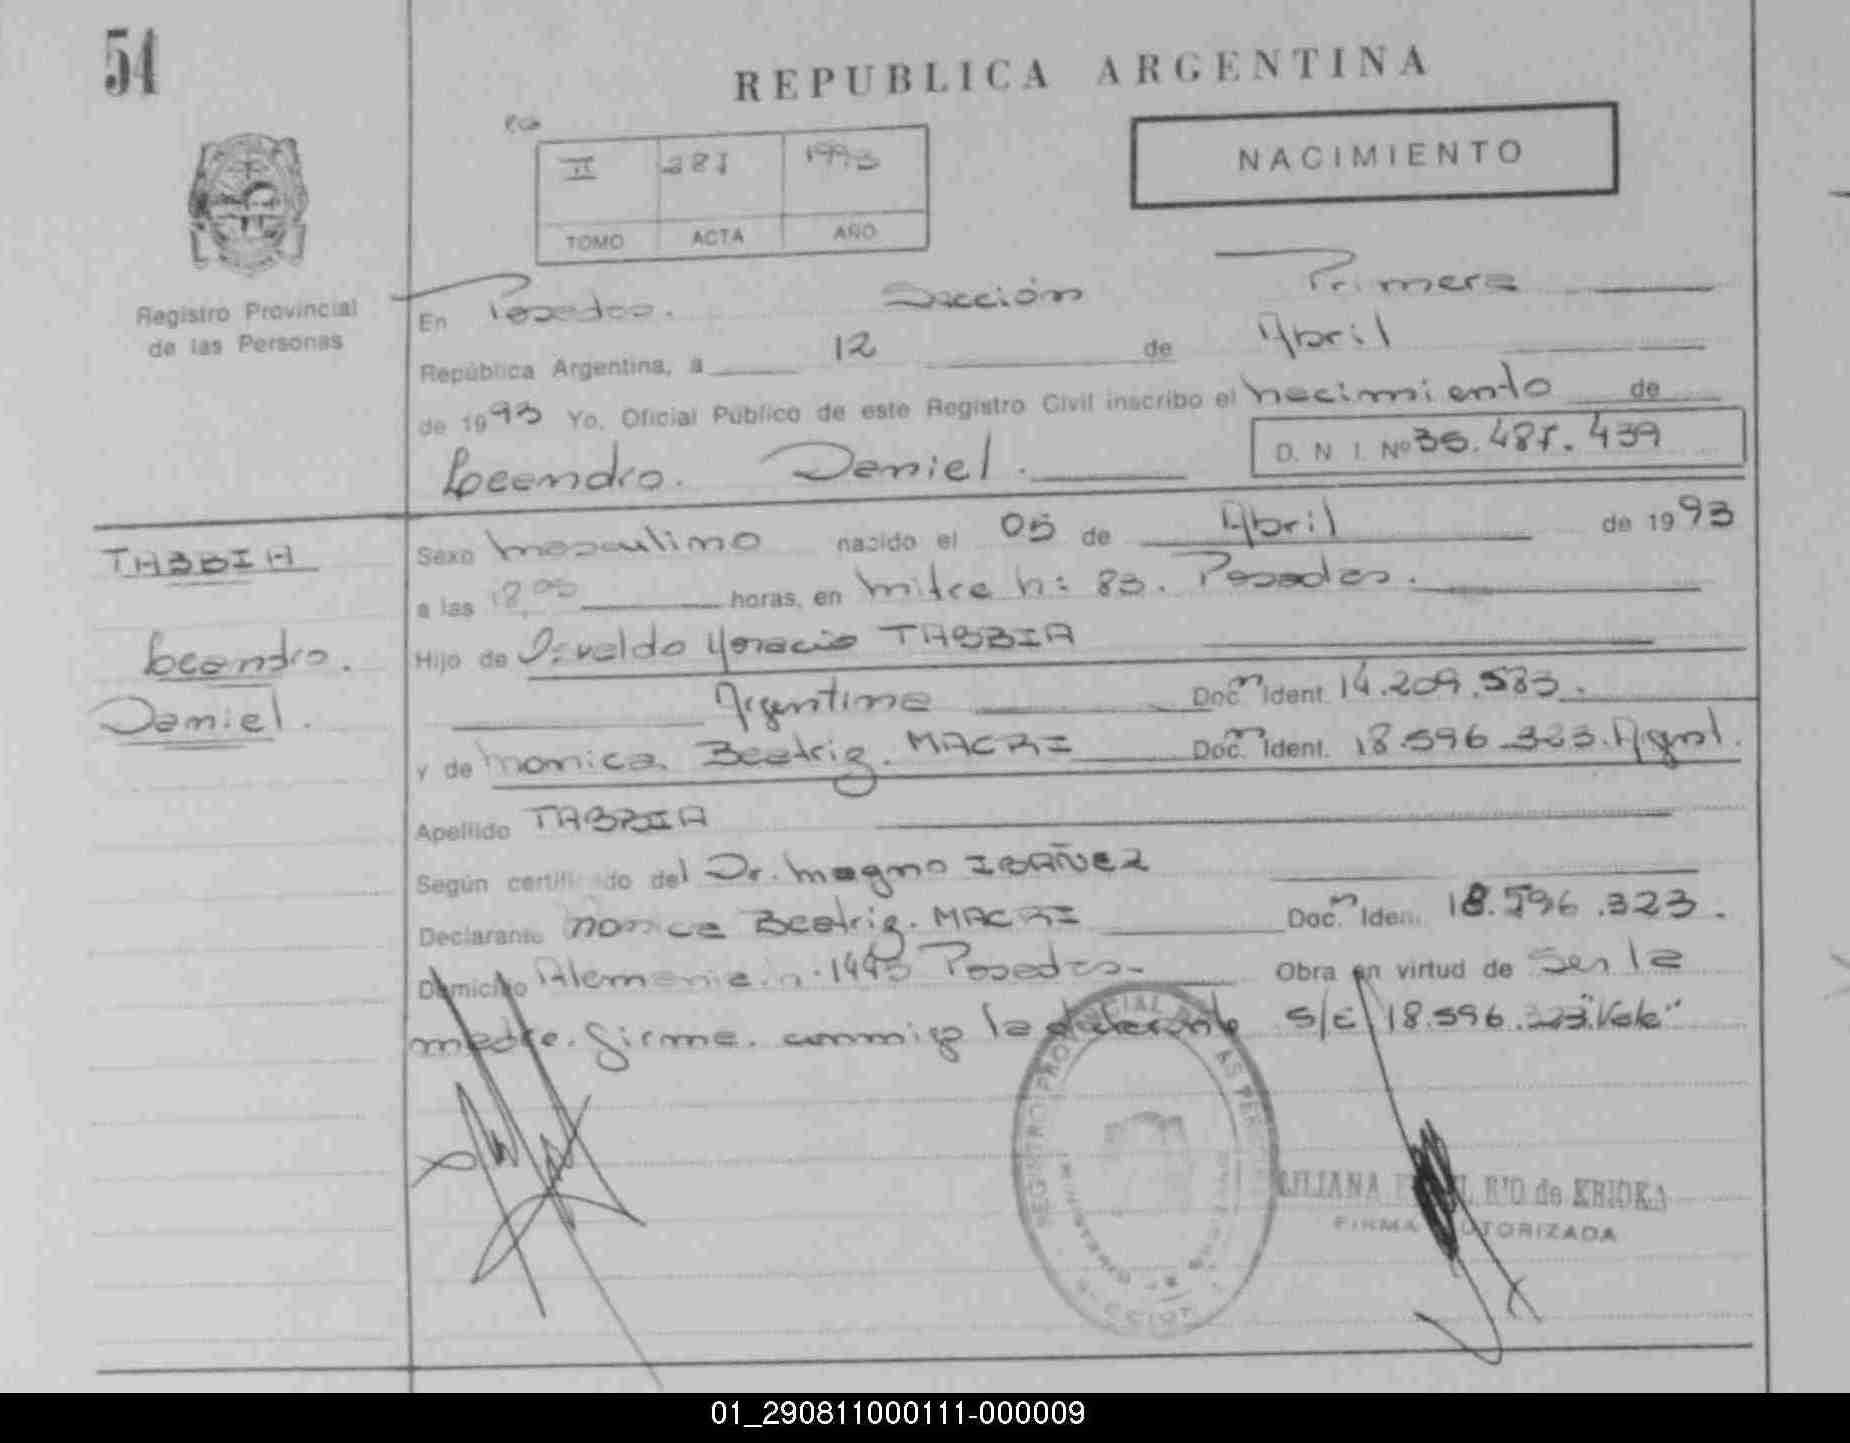 54
REPUBLICA ARGENTINA
NACIMIENTO
II 281 1993
TOMO ACTA AÑO
Registro Provincial
de las Personas
En Posadas. Sección Primera
República Argentina, a 12 de Abril
de 1993 Yo, Oficial Público de este Registro Civil inscribo el nacimiento de
Leandro. Daniel.
D. N I. Nº 35.487.439
TABBIA
Leandro.
Daniel.
Sexo masculino nacido el 05 de Abril de 1993
a las 18,05 horas, en mitre n: 83. Posadas.
Hijo de Osvaldo Horacio TABBIA
Argentina Doc.m Ident. 14.209.583.
y de monica Beatriz. MACRI Doc.m Ident. 18.596.323. Agnt.
Apellido TABBIA
Según certificado del Dr. magno IBAÑEZ
Declarante monica Beatriz. MACRI Doc.m Iden. 18.596.323.
Domicilio Alemania. n. 1445 Posadas- Obra en virtud de Ser la
madre. firma. conmigo la S/E 18.596.323."Vale"
REGISTRO PROVINCIAL DE LAS PER
LILIANA DEL RIO de KRIOKA
FIRMA AUTORIZADA
01_290811000111-000009